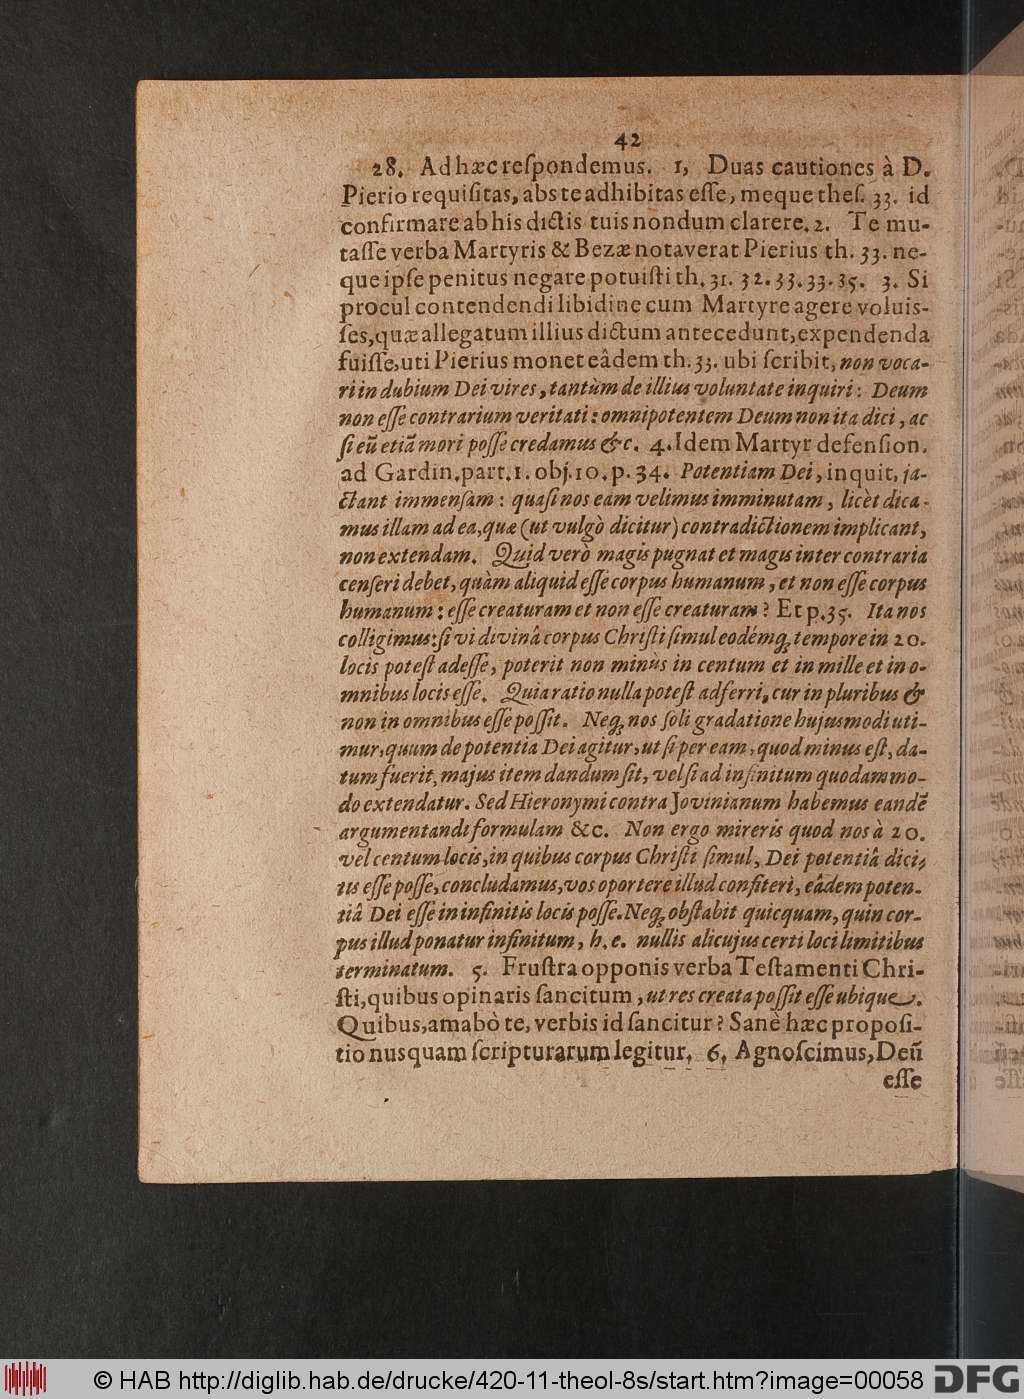 42
28. Ad hæc reſpondemus. 1, Duas cautiones à D.
Pierio requiſitas, abs te adhibitas eſſe, meque theſ. 33. id
confirmare ab his dictis tuis nondum clarere. 2. Te mu-
taſſe verba Martyris & Bezæ notaverat Pierius th. 33. ne-
que ipſe penitus negare potuiſti th. 31. 32. 33. 33. 35. 3. Si
procul contendendi libidine cum Martyre agere voluis-
ſes, quæ allegatum illius dictum antecedunt, expendenda
fuiſſe, uti Pierius monet eâdem th. 33. ubi ſcribit, non voca-
ri in dubium Dei vires, tantùm de illius voluntate inquiri: Deum
non eſſe contrarium veritati: omnipotentem Deum non ita dici, ac
ſi eũ etiã mori poſſe credamus &c. 4. Idem Martyr defenſion.
ad Gardin. part. 1. obj. 10. p. 34. Potentiam Dei, inquit, ja-
ctant immenſam: quaſi nos eam velimus imminutam, licèt dica-
mus illam ad ea, quæ (ut vulgò dicitur) contradictionem implicant,
non extendam. Quid verò magis pugnat et magis inter contraria
cenſeri debet, quàm aliquid eſſe corpus humanum, et non eſſe corpus
humanum: eſſe creaturam et non eſſe creaturam? Et p. 35. Ita nos
colligimus: ſi vi divinâ corpus Chriſti ſimul eodémq; tempore in 20.
locis poteſt adeſſe, poterit non minùs in centum et in mille et in o-
mnibus locis eſſe. Quia ratio nulla poteſt adferri, cur in pluribus &
non in omnibus eſſe poſſit. Neq; nos ſoli gradatione hujusmodi uti-
mur, quum de potentia Dei agitur, ut ſi per eam, quod minus eſt, da-
tum fuerit, majus item dandum ſit, vel ſi ad infinitum quodammo-
do extendatur. Sed Hieronymi contra Jovinianum habemus eandẽ
argumentandi formulam &c. Non ergo mireris quod nos à 20.
vel centum locis, in quibus corpus Chriſti ſimul, Dei potentiâ dici,
us eſſe poſſe, concludamus, vos oportere illud confiteri, eâdem poten-
tiâ Dei eſſe in infinitis locis poſſe. Neq; obſtabit quicquam, quin cor-
pus illud ponatur infinitum, h. e. nullis alicujus certi loci limitibus
terminatum. 5. Fruſtra opponis verba Teſtamenti Chri-
ſti, quibus opinaris ſancitum, ut res creata poſſit eſſe ubique.
Quibus, amabò te, verbis id ſancitur? Sanè hæc propoſi-
tio nusquam ſcripturarum legitur. 6, Agnoſcimus, Deũ
eſſe
© HAB http://diglib.hab.de/drucke/420-11-theol-8s/start.htm?image=00058
DFG